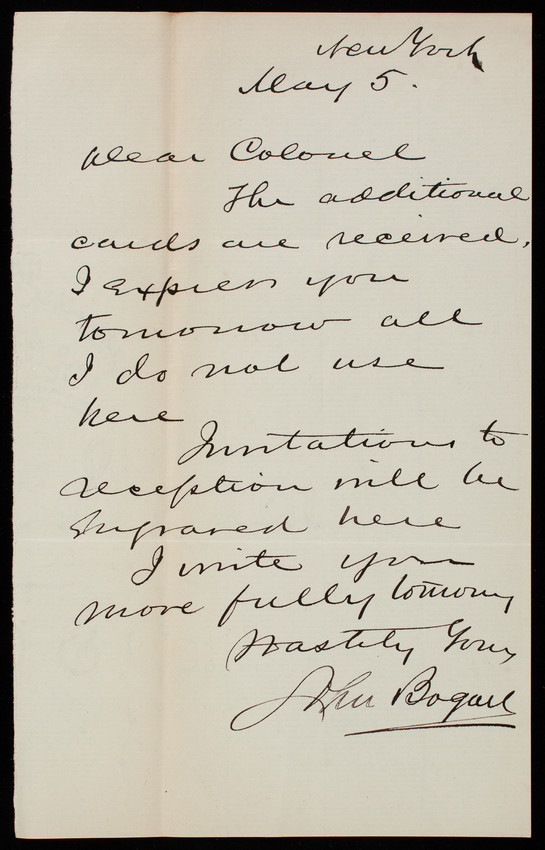 New York
May 5.
Dear Colonel
The additional
cards are received.
I express you
tomorrow all
I do not use
here
Invitations to
reception will be
engraved here
I write you
more fully tomorrow
Hastily Yours
John Bogart